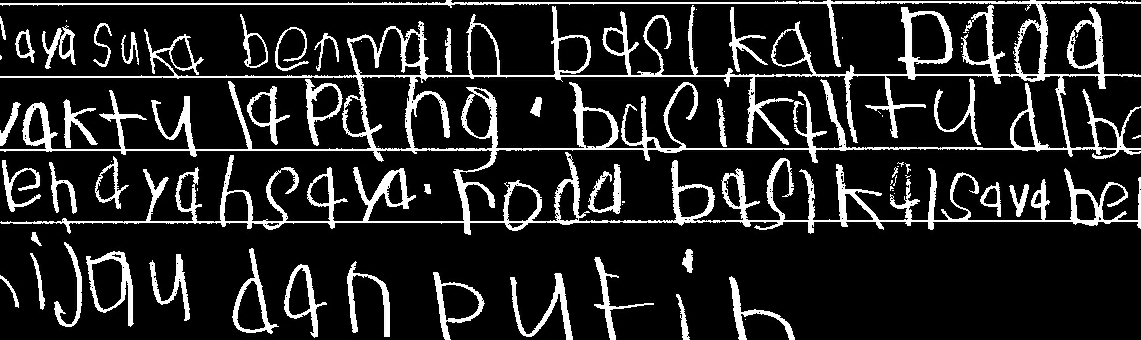 saya suka benmain basikal pada
waktu lapang. basikal itu dibe
leh ayah saya. roda basikal saya be
hijau dan putih